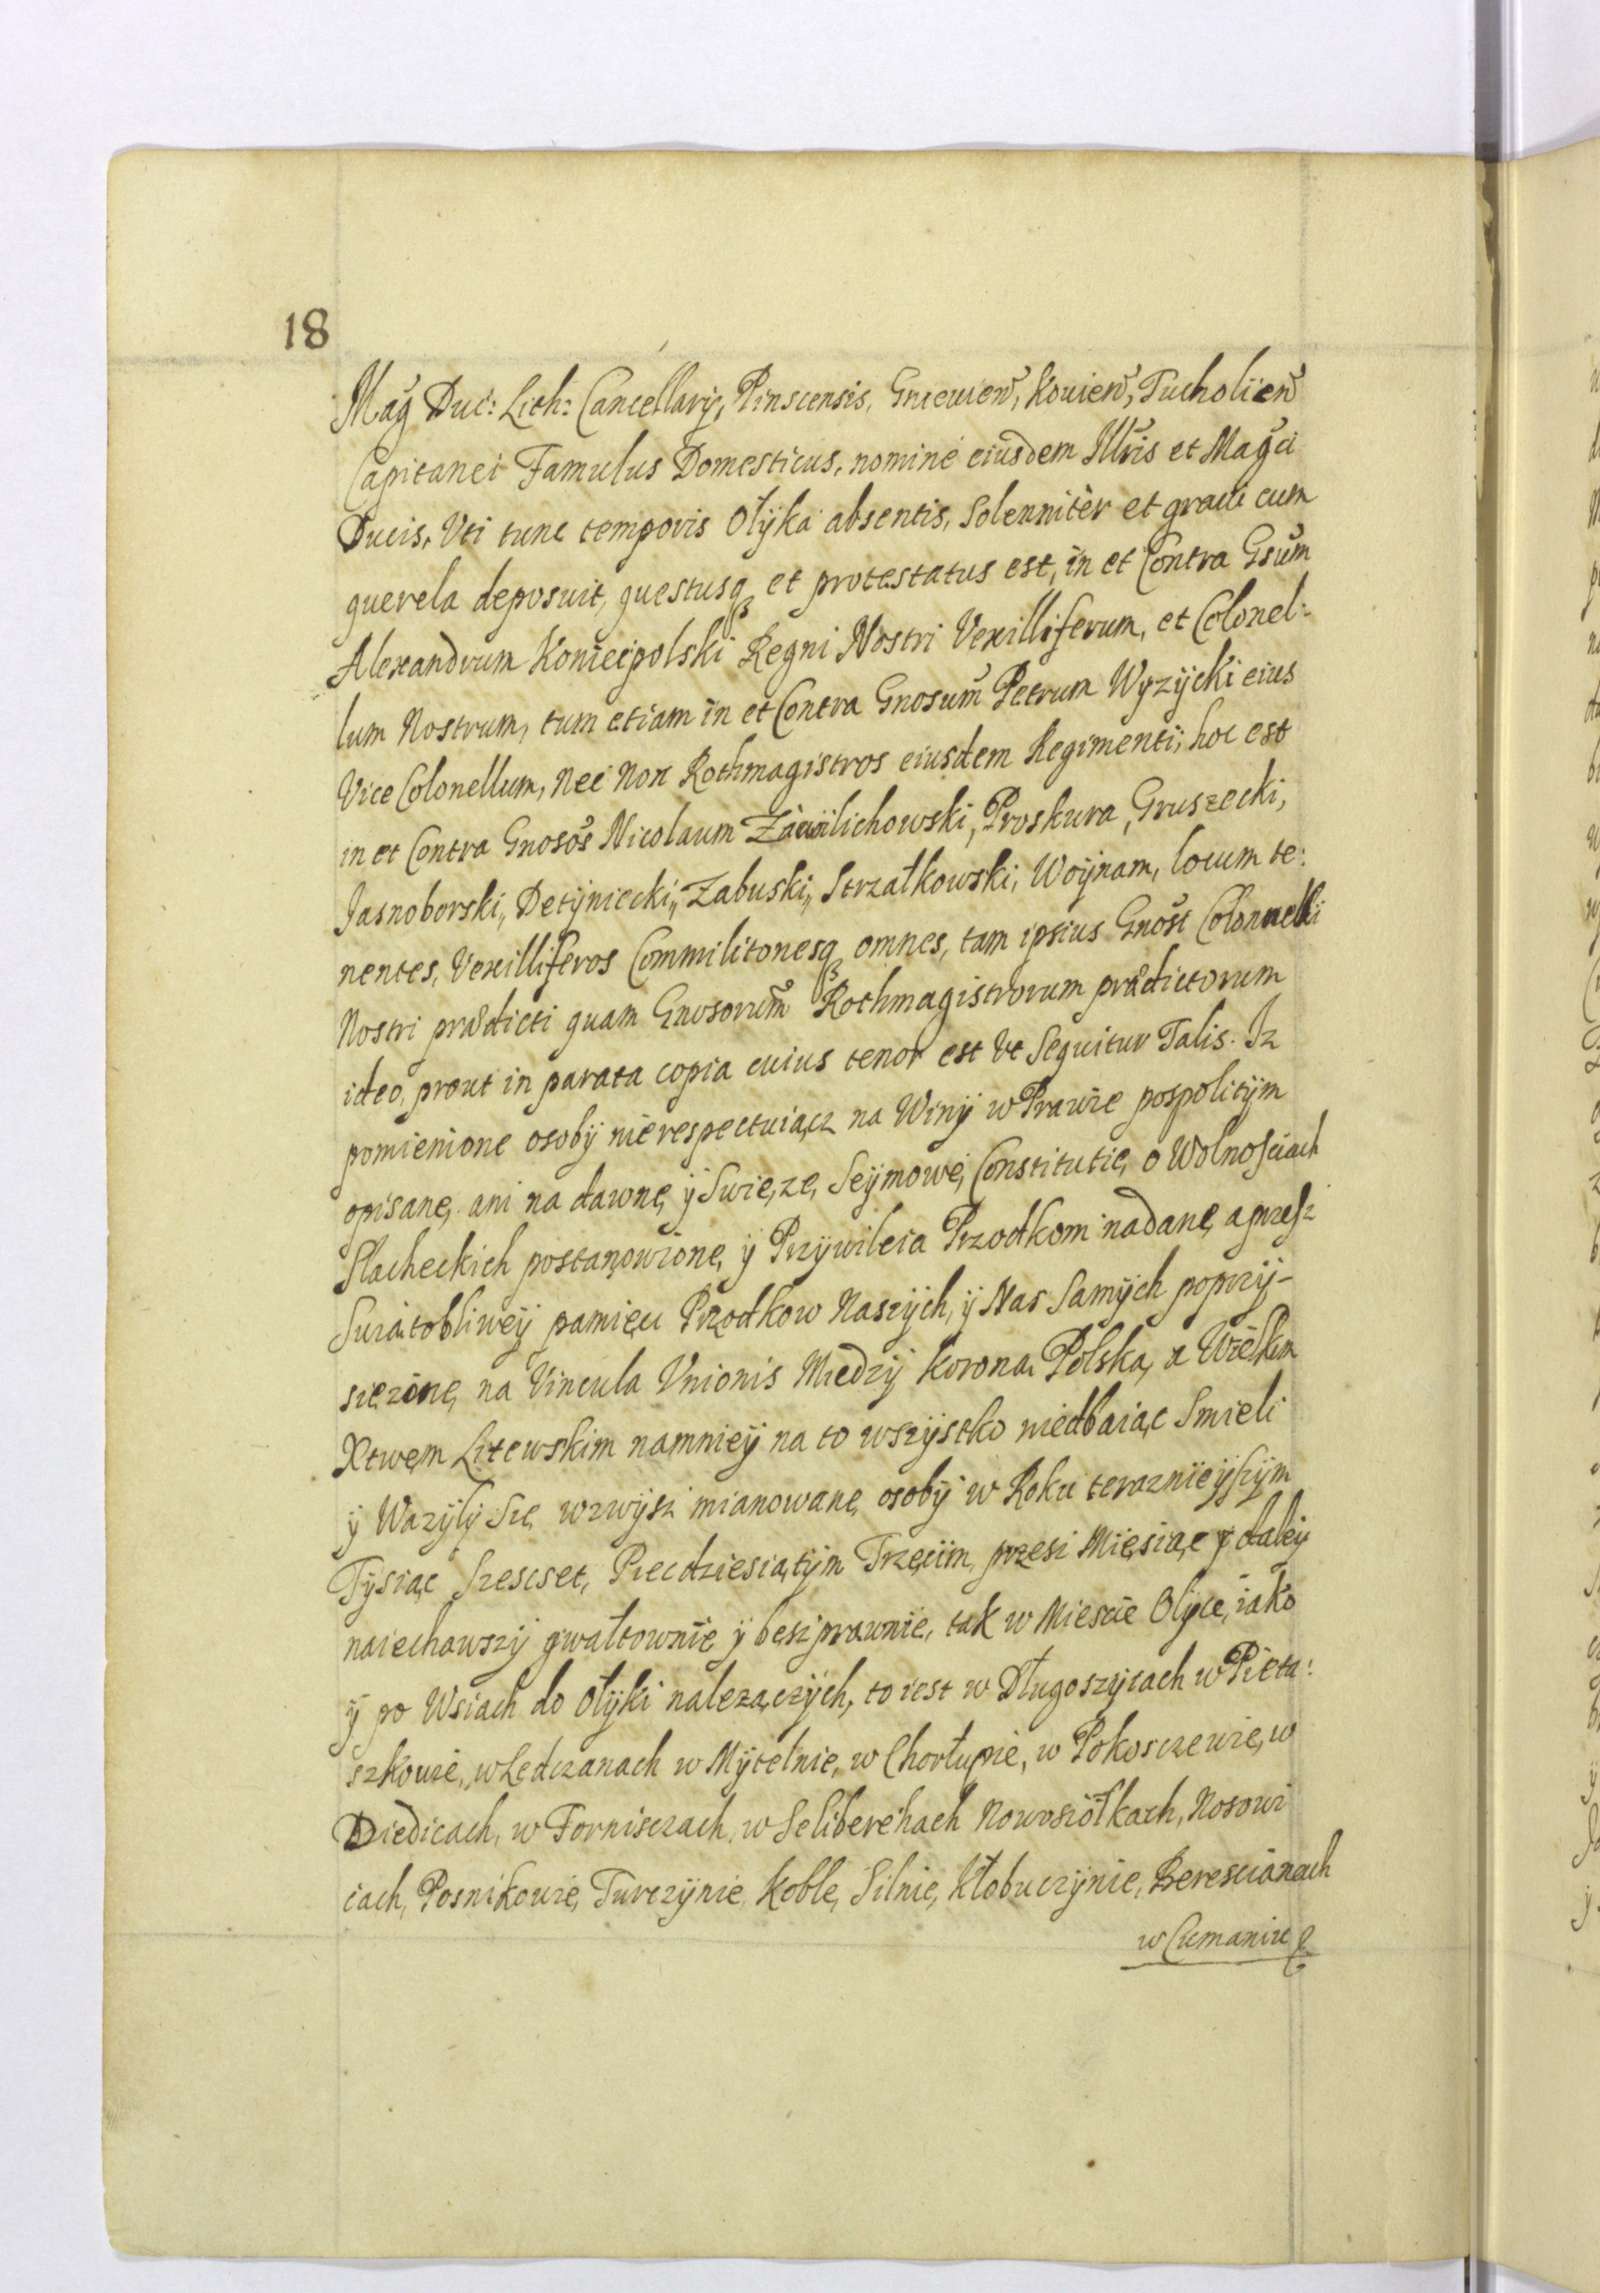 18
Mag̃ Duc: Lith: Cancellarÿ, Pinscensis, Gnieuien̄, Kouien̄, Tucholien̄
Capitanei Famulus Domesticus, nomine eiusdem Illr̃is et Mag̃ci
Ducis, Vti tunc temporis Olÿka absentis, Solenniter et graui cum
querela deposuit, questusq, et protestatus est, in et Contra Gsum̃
Alexandrum Koniecpolski Regni Nostri Vexilliferum, et Colonel:
lum Nostrum, tum etiam in et Contra Gnosum̃ Petrum Wyzÿcki eius
Vice Colonellum, Nec Non Rothmagistros eiusdem Regimenti, hoc est
in et Contra Gnosos̃ Nicolaum Zawilichowski, Proskura, Gruszecki,
Jasnoborski, Detÿniecki, Zabuski, Strzałkowski, Woÿnam, locum te:
nentes, Vexilliferos Commilitonesq, omnes, tam ipsius Gnosi Colonnelli
Nostri prædicti quam Gnosorum̃ Rothmagistrorum prædictorum
ideo, prout in parata copia cuius tenor est Vt Sequitur Talis. Iz
pomienione osobÿ nierespectuiącz na Winÿ w Prawie pospolitÿm
opisane, ani na dawne, ÿ Swięze, Seÿmowe, Constitutie, o Wolnosciach
Slacheckich postanowione, ÿ Przÿwileia Przodkom nadane, a przesz
Swiątobliweÿ pamięci Przodkow Naszÿch, ÿ Nas Samÿch poprzÿ-
sięzone, na Vincula Vnionis Miedzÿ Koroną Polską, a Wielkim
Xtwem Litewskim namnieÿ na to wszÿstko niedbaiąc Smieli
ÿ Wazÿlÿ Się wzwÿsz mianowane, osobÿ w Roku teraznieÿszÿm
Tÿsiąc Szescset, Piecdziesiątÿm Trzecim, przesz Miesiąc ÿ daleÿ
naiechawszÿ gwałtownie ÿ besz prawnie, tak w Miescie Olÿce, iako
ÿ po Wsiach do Ołÿki nalezączÿch, to iest w Długoszÿiach w Pieta:
szkowie, w Ledczanach w Mÿtelnie, w Chorłupie, w Pokosczewie, w
Dziedicach, w Forniszczach, w Seliberehach Nowosiółkach, Nosowi
ciach, Posnikowie, Turczÿnie, Koble, Silnie, Kłobuczÿnie, Berescianach
w Cumaniu